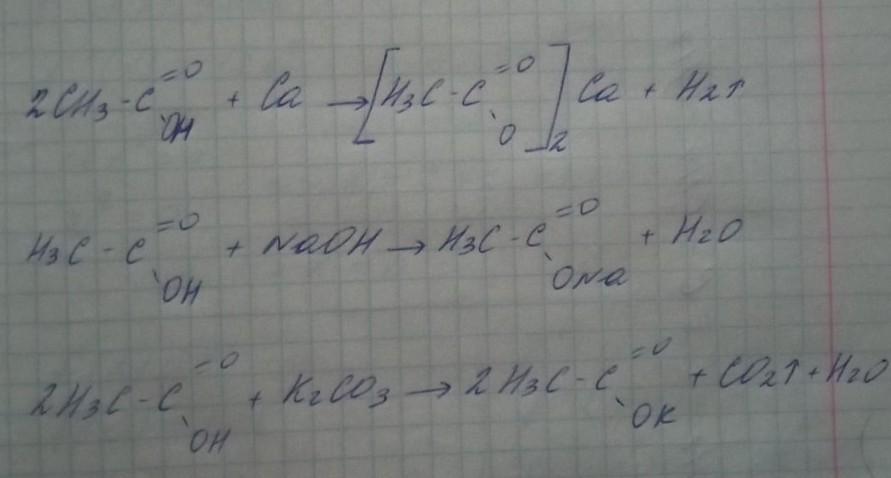 2CH3-C=O OH + Ca → [H3C-C=O O]2 Ca + H2↑
H3C-C=O OH + NaOH → H3C-C=O ONa + H2O
2H3C-C=O OH + K2CO3 → 2H3C-C=O OK + CO2↑ + H2O